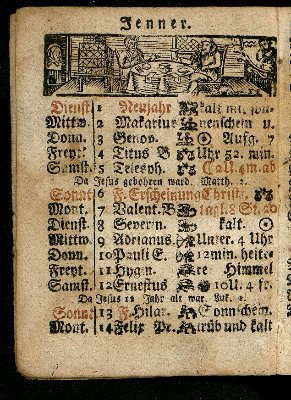 Jenner.
Dienst 1 Neujahr kalt mit son-
Mittw. 2 Makarius nenschein u.
Donn. 3 Genov. Aufg. 7
Freyt. 4 Titus B Uhr 52. min.
Samst. 5 Telesph.
Da Jesus gebohren ward. Matth. 2.
Sonnt 6 F. Erscheinung Christ.
Mont. 7 Valent. B
Dienst 8 Severn. kalt.
Mittw 9 Adrianus. Unter. 4 Uhr
Donn. 10 Pauli E. 12 min. heite-
Freyt. 11 Hygin. re Himmel
Samst. 12 Ernestus 10 U. 4 fr.
Da Jesus 12 Jahr alt war. Luk. 2.
Sonnt 13 F. Hilar. Sonnschein.
Mont. 14 Felix Pr. trüb und kalt